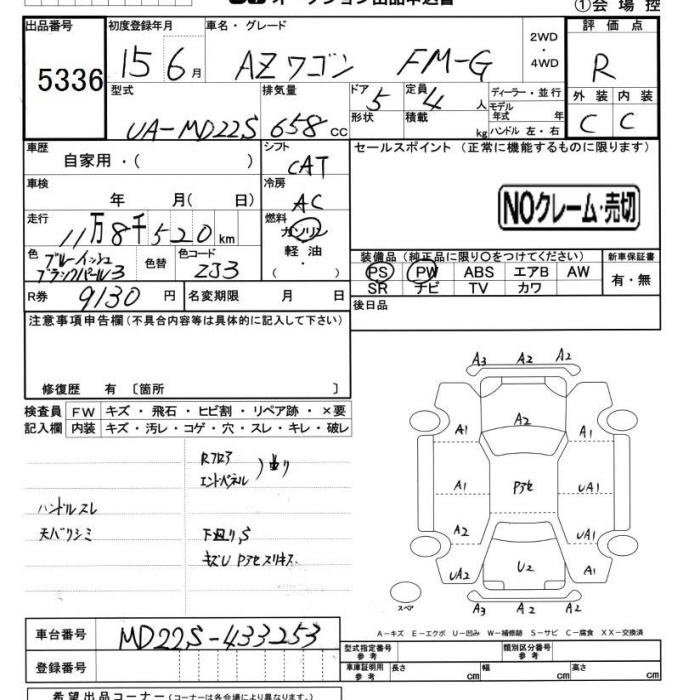 オークション出品申込書
①会場控
出品番号 初度登録年月 車名・グレード 2WD・4WD 評価点
5336 15 6月 AZワゴン FM-G R
型式 排気量 ドア 5 定員 4人 ディーラー・並行 外装 内装
UA-MD22S 658cc 形状 積載 kg モデル年式 年 C C
ハンドル 左・右
車歴 シフト セールスポイント (正常に機能するものに限ります)
自家用・( ) CAT
車検 冷房
年 月( 日) AC NOクレーム・売切
走行 燃料
11万8千520km ガソリン
色 ブルーイッシュ 色替 色コード 軽油 装備品(純正品に限り○をつけてください) 新車保証書
ブラックパール3 ZJ3 ( ・ ) PS PW ABS エアB AW 有・無
R券 9130円 名変期限 月 日 SR ナビ TV カワ
後日品
注意事項申告欄(不具合内容等は具体的に記入して下さい)
修復歴 有 〔箇所 〕
検査員 FW キズ・飛石・ヒビ割・リペア跡・×要
記入欄 内装 キズ・汚レ・コゲ・穴・スレ・キレ・破レ
A3 A2 A2
A1 A2 A1
A1 Pアセ UA1
A2 UA1
UA2 U2 A1
A3 A2 A2
スペア
Rフロア
エンドパネル )曲り
ハンドルスレ
天バリシミ 下廻りS
キズU Pアセスリキズ
A−キズ E−エクボ U−凹み W−補修跡 S−サビ C−腐食 XX−交換済
車台番号 MD22S-433253 型式指定番号 参考 類別区分番号 参考
登録番号 車庫証明用 参考 長さ cm 幅 cm 高さ cm
希望出品コーナー(コーナーは各会場により異なります。)